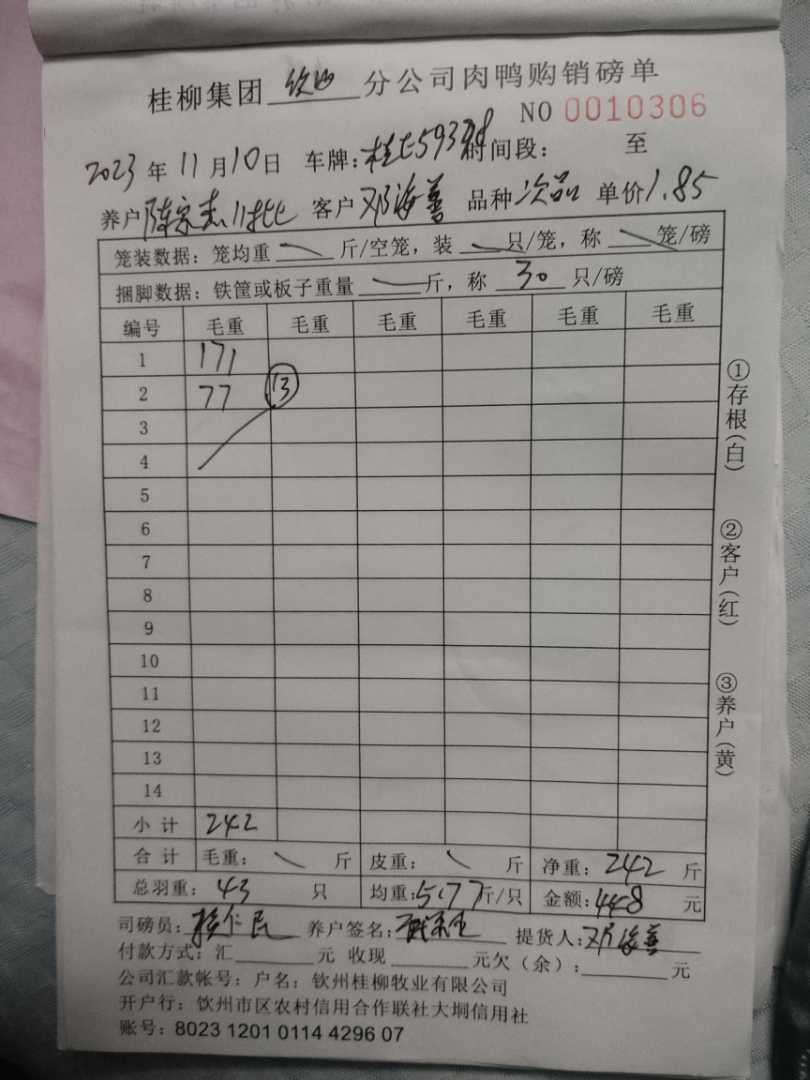 桂柳集团 钦州 分公司肉鸭购销磅单
NO 0010306
2023 年 11 月 10 日 车牌: 时间段: 至
养户 11批 客户 邓海善 品种 次品 单价 1.85
笼装数据：笼均重 斤/空笼，装 只/笼，称 笼/磅
捆脚数据：铁筐或板子重量 斤，称 30 只/磅
编号 毛重 毛重 毛重 毛重 毛重 毛重
1 171
2 77 13
3
4
5
6
7
8
9
10
11
12
13
14
小 计 242
合 计 毛重： 斤 皮重： 斤 净重：242 斤
总羽重：43 只 均重：5.77 斤/只 金额：448 元
司磅员： 养户签名： 提货人：邓海善
付款方式：汇 元 收现 元欠（余）： 元
公司汇款帐号：户名：钦州桂柳牧业有限公司
开户行：钦州市区农村信用合作联社大垌信用社
账号：8023 1201 0114 4296 07
①存根(白)
②客户(红)
③养户(黄)